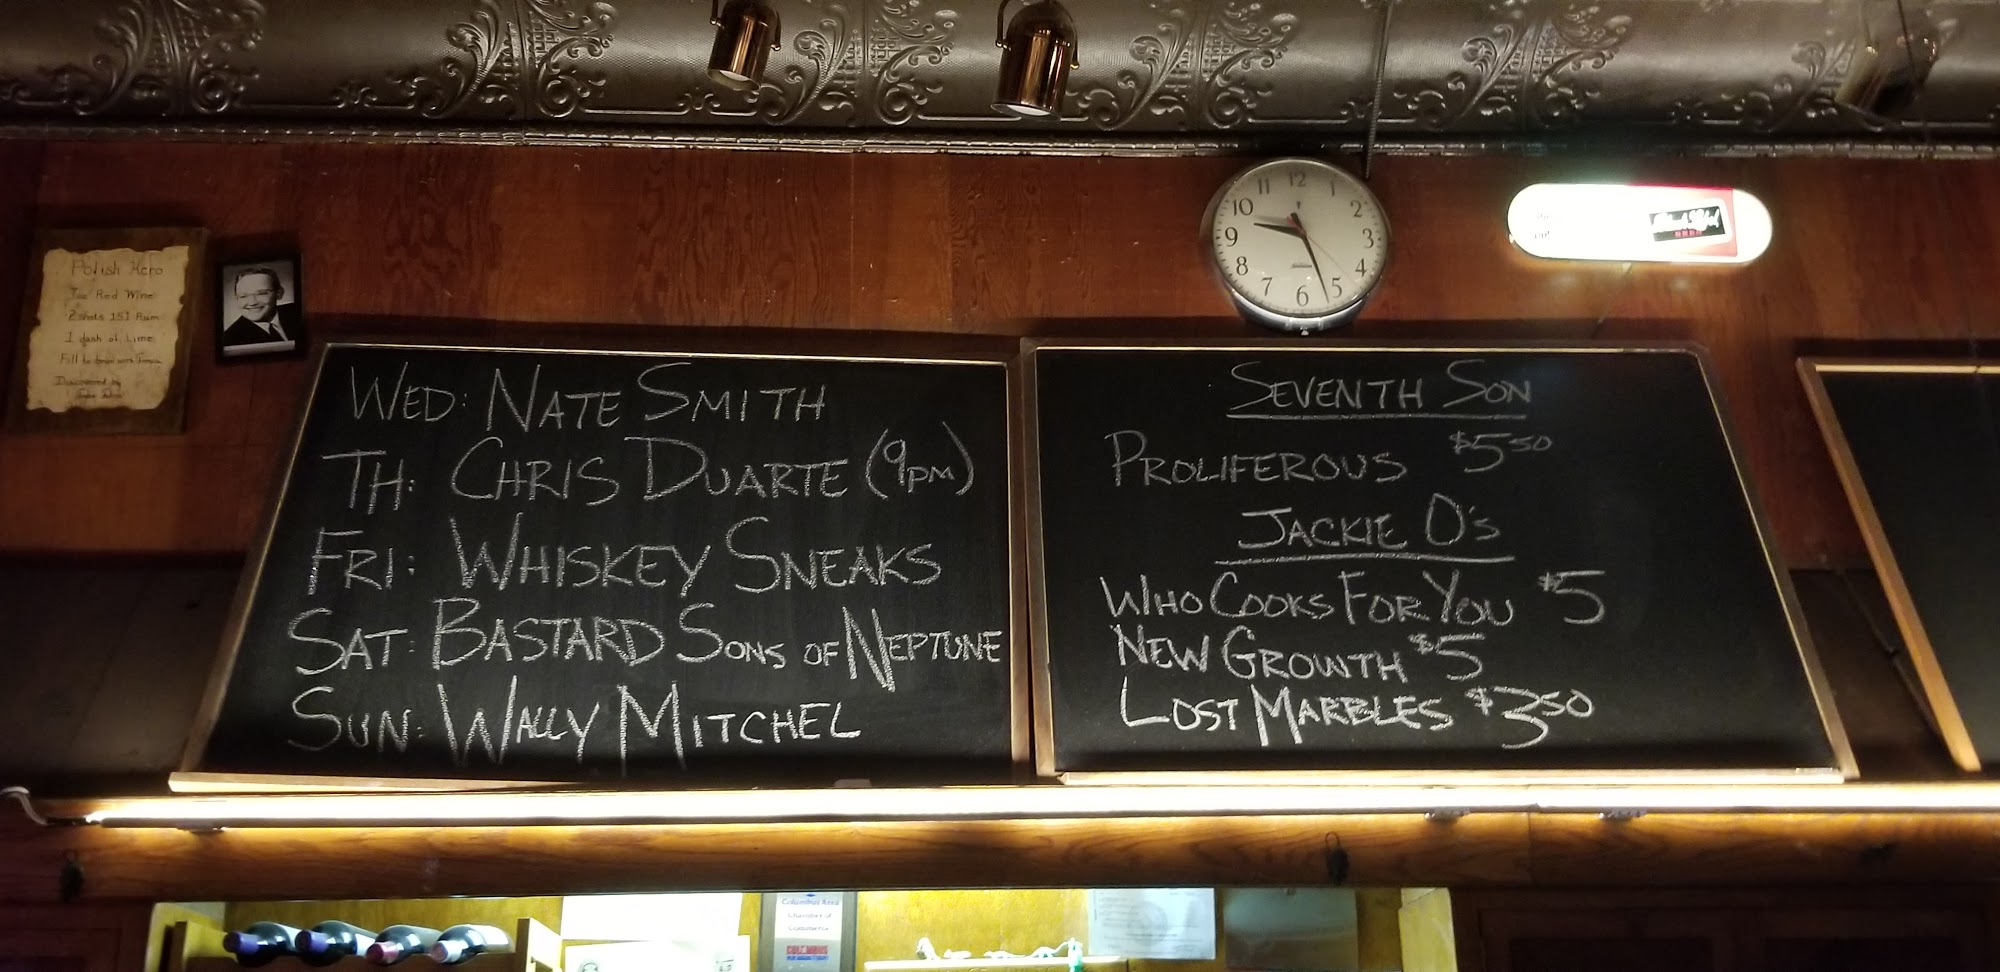 Polish Hero
Red Wine
2 shots 151 Rum
1 dash of Lime
Fill to
Discovered by
WED: NATE SMITH
TH: CHRIS DUARTE (9PM)
FRI: WHISKEY SNEAKS
SAT: BASTARD SONS OF NEPTUNE
SUN: WALLY MITCHEL
12
1
2
3
4
5
6
7
8
9
10
11
SEVENTH SON
PROLIFEROUS $5.50
JACKIE O's
WHO COOKS FOR YOU $5
NEW GROWTH $5
LOST MARBLES $3.50
Columbus Area
Chamber of
Commerce
COLUMBUS